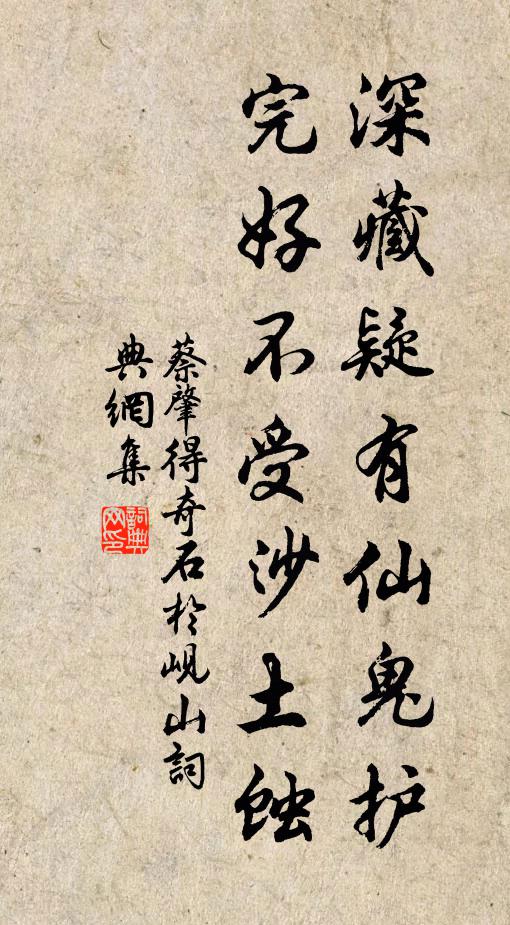 深藏疑有仙鬼护
完好不受沙土蚀
蔡肇得奇石於岘山詞
典網集
詞典网印